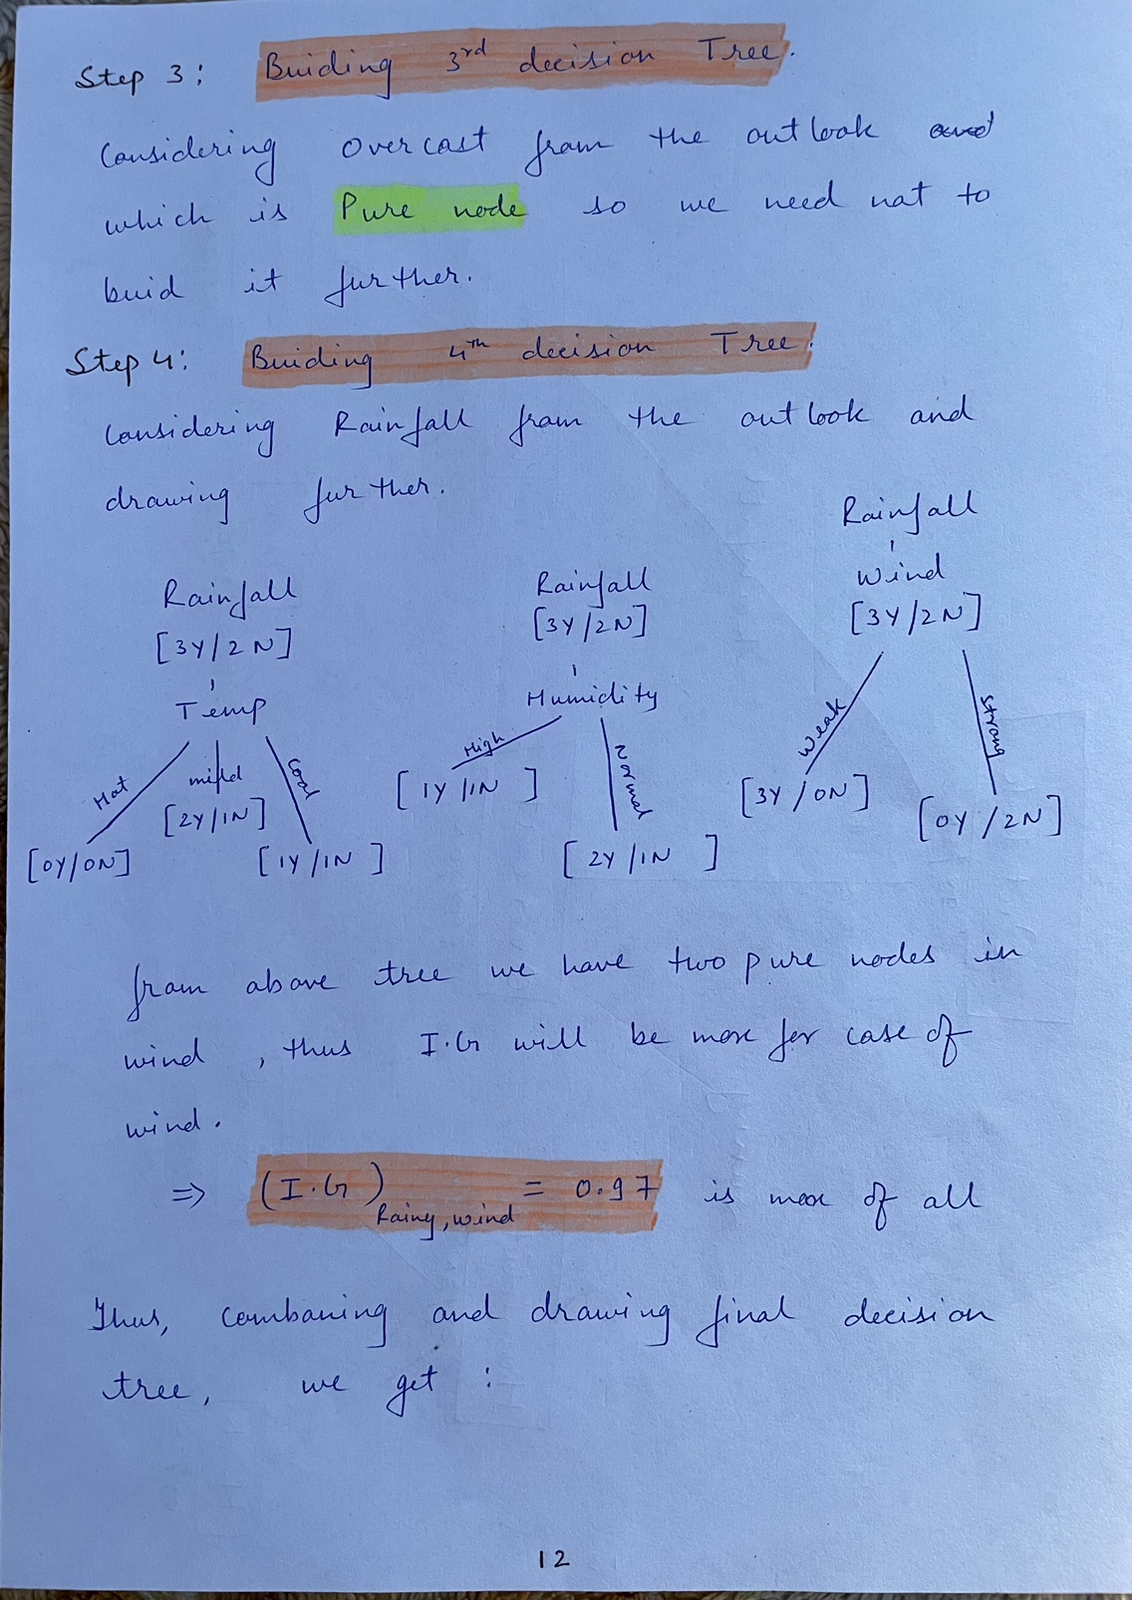 Step 3: Buiding 3rd decision Tree.
Considering overcast from the outlook
which is Pure node so we need not to
buid it further.
Step 4: Buiding 4th decision Tree.
Considering Rainfall from the outlook and
drawing further.
Rainfall
[3Y/2N]
Temp
Hot
mild
Cool
[0Y/0N]
[2Y/1N]
[1Y/1N]
Rainfall
[3Y/2N]
Humidity
High
Normal
[1Y/1N]
[2Y/1N]
Rainfall
Wind
[3Y/2N]
Weak
Strong
[3Y/0N]
[0Y/2N]
from above tree we have two pure nodes in
wind, thus I.G will be more for case of
wind.
⇒ (I.G) Rainy, wind = 0.97 is more of all
Thus, combaning and drawing final decision
tree, we get :
12